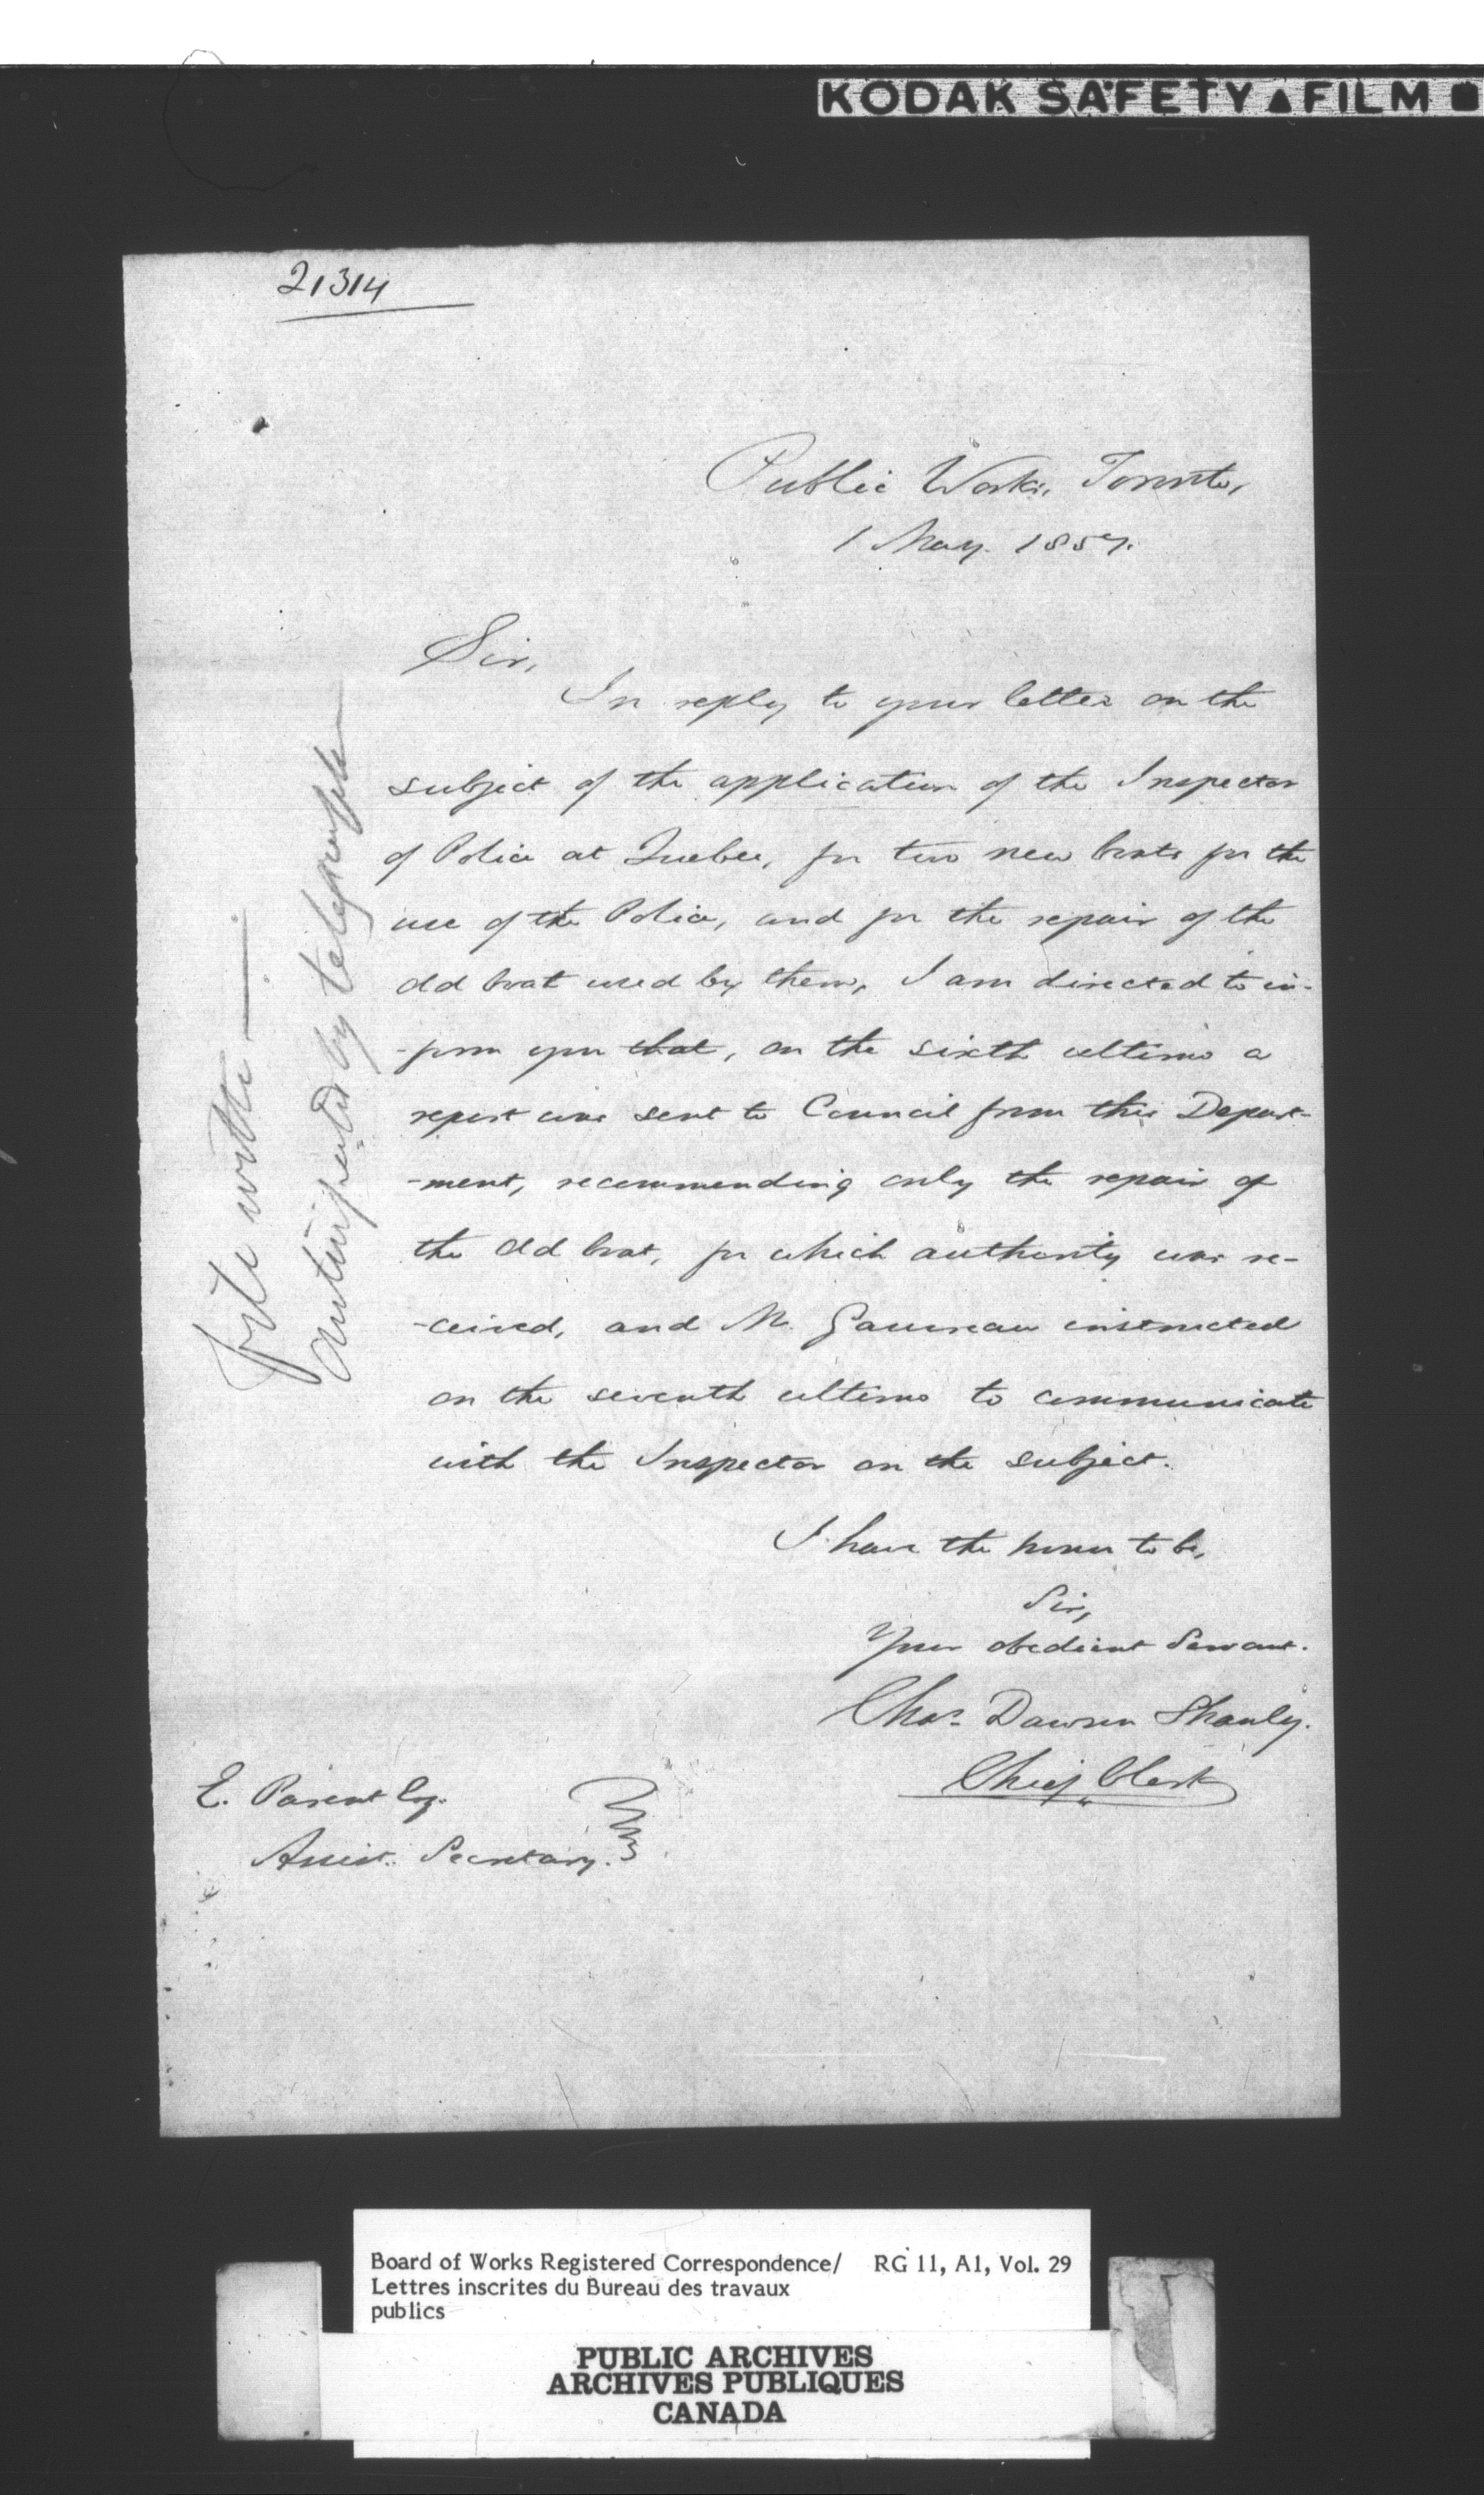 KODAK SAFETY FILM
21314
Public Works, Toronto,
1 May. 1857.
Sir,
In reply to your letter on the
subject of the application of the Inspector
of Police at Quebec, for two new boats for the
use of the Police, and for the repair of the
old boat used by them, I am directed to in-
-form you that, on the sixth ultimo a
report was sent to Council from this Depart-
-ment, recommending only the repair of
the old boat, for which authority was re-
-ceived, and Mr. Gauvreau instructed
on the seventh ultimo to communicate
with the Inspector on the subject.
I have the honor to be,
Sir,
Your obedient Servant.
Chas. Dawson Shanly.
Chief Clerk
E. Parent Esq.
Assist. Secretary.
write
by telegraph
Board of Works Registered Correspondence/ RG 11, A1, Vol. 29
Lettres inscrites du Bureau des travaux
publics
PUBLIC ARCHIVES
ARCHIVES PUBLIQUES
CANADA